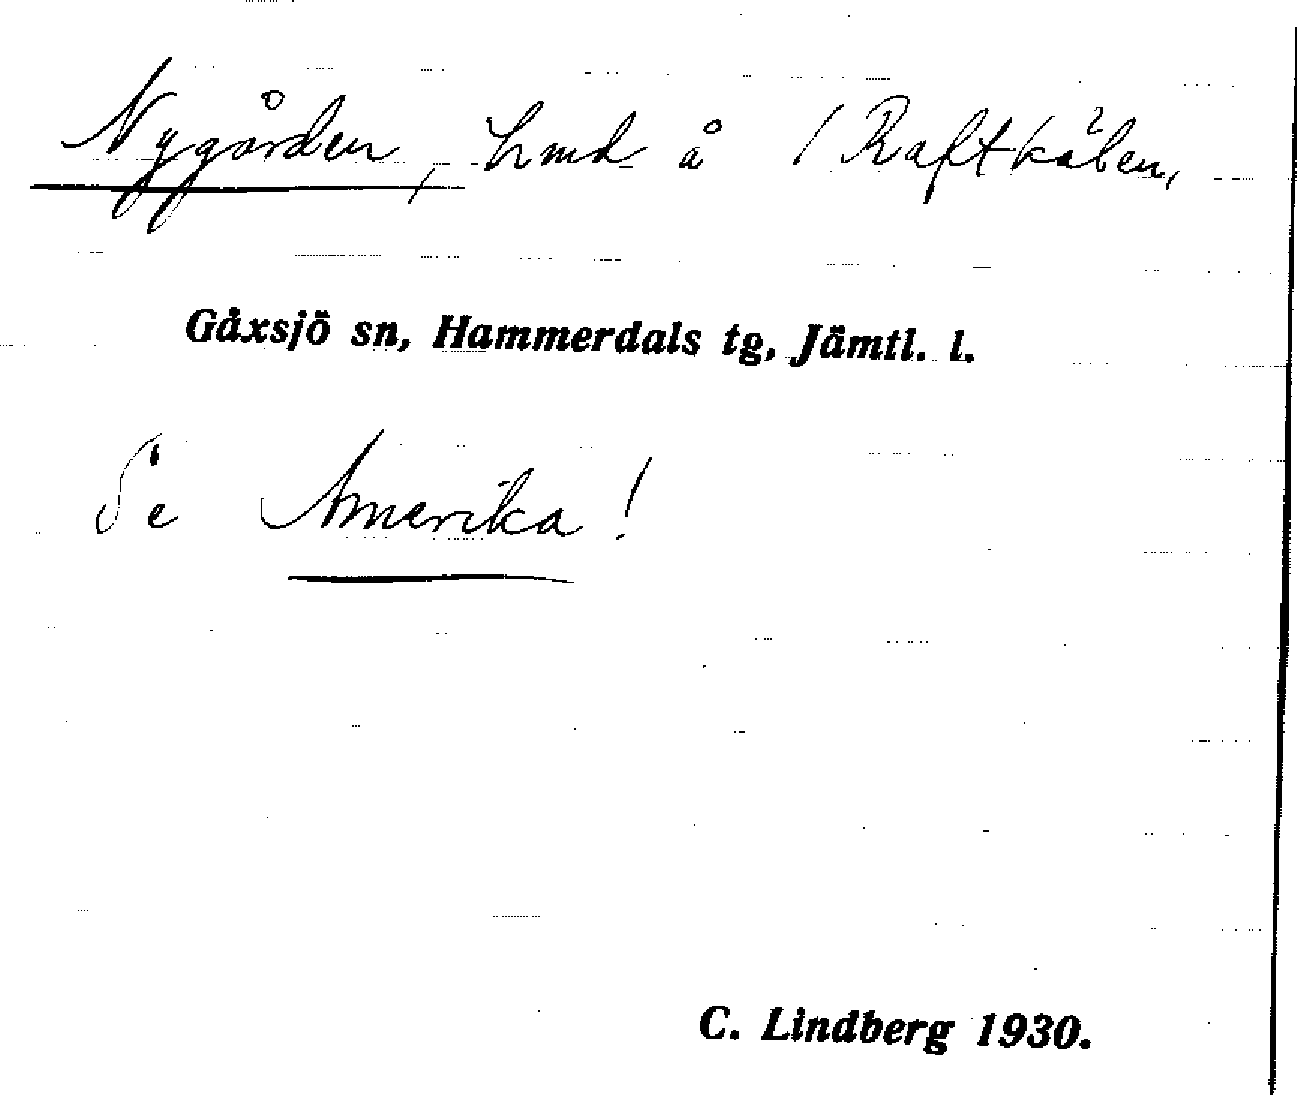 Nygården, hmd å / Raftkälen,
Gåxsjö sn, Hammerdals tg, Jämtl. l.
Se Amerika!
C. Lindberg 1930.